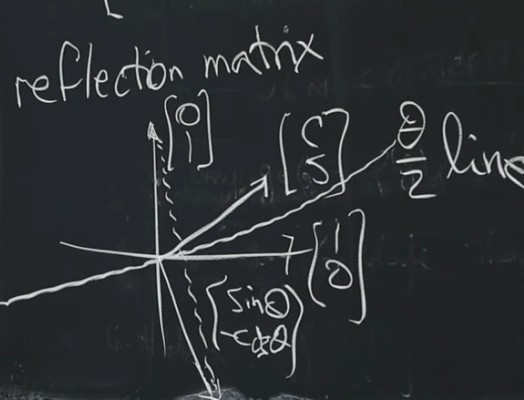 reflection matrix
[0
1]
[c
s]
θ/2 line
[1
0]
[sinθ
-cosθ]